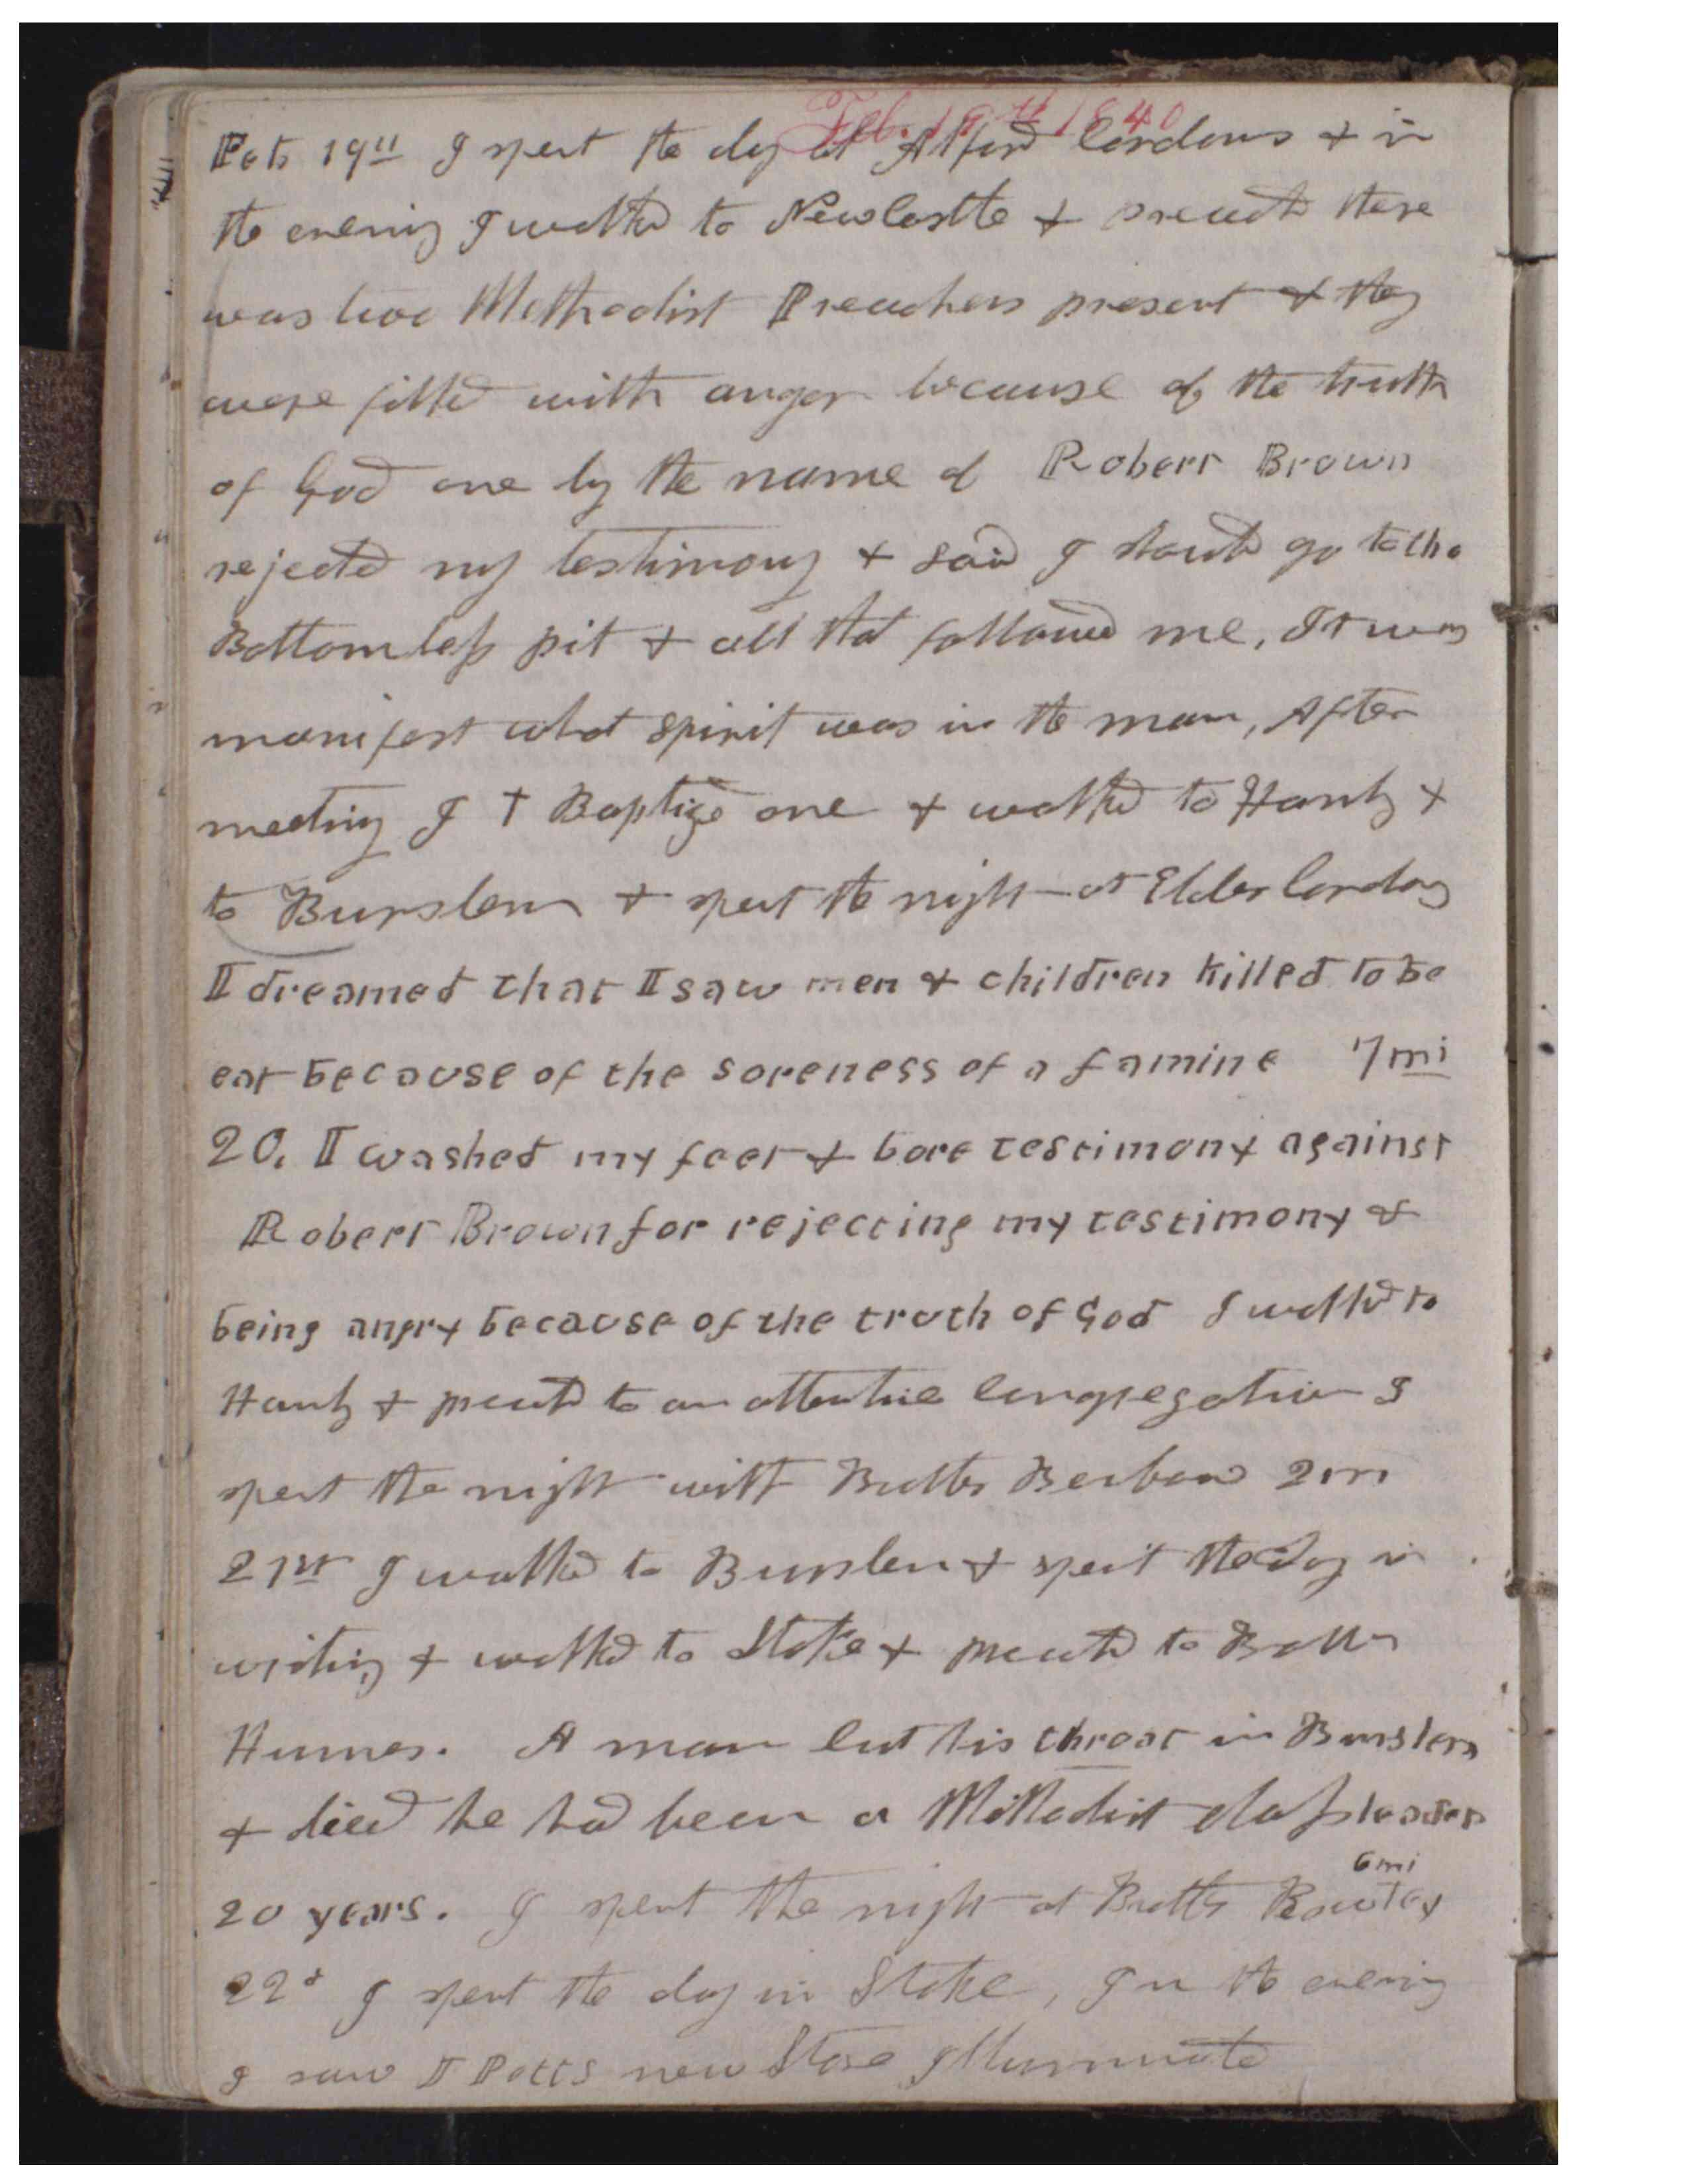 Feb. 19th 1840
Feb 19th I spent the day at Alfred Cordons & in
the evening I walked to Newcastle & preachd there
was two Methodist Preachers present & they
were filled with anger because of the truth
of God one by the name of Robert Brown
rejected my testimony & said I should go to the
Bottomless pit & all that followed me, It was
manifest what spirit was in the man, After
meeting I † Baptized one & walked to Hanly &
to Burslem & spent the night at Elder Cordons
I dreamed that I saw men & children killed to be
eat because of the soreness of a famine 7 mi
20. I washed my feet & bore testimony against
Robert Brown for rejecting my testimony &
being angry because of the truth of God I walked to
Hanly & preachd to an attentive congregation I
spent the night with Brother Benbow 2 m
21st I walked to Burslem & spent the day in
writing & walked to Stoke & preachd to Brother
Humes. A man cut his throat in Burslem
& died he had been a Methodist class leader
20 years. I spent the night at Brothr Rowley 6 mi
22d I spent the day in Stoke, In the evening
I saw I Potts new Store Illuminated